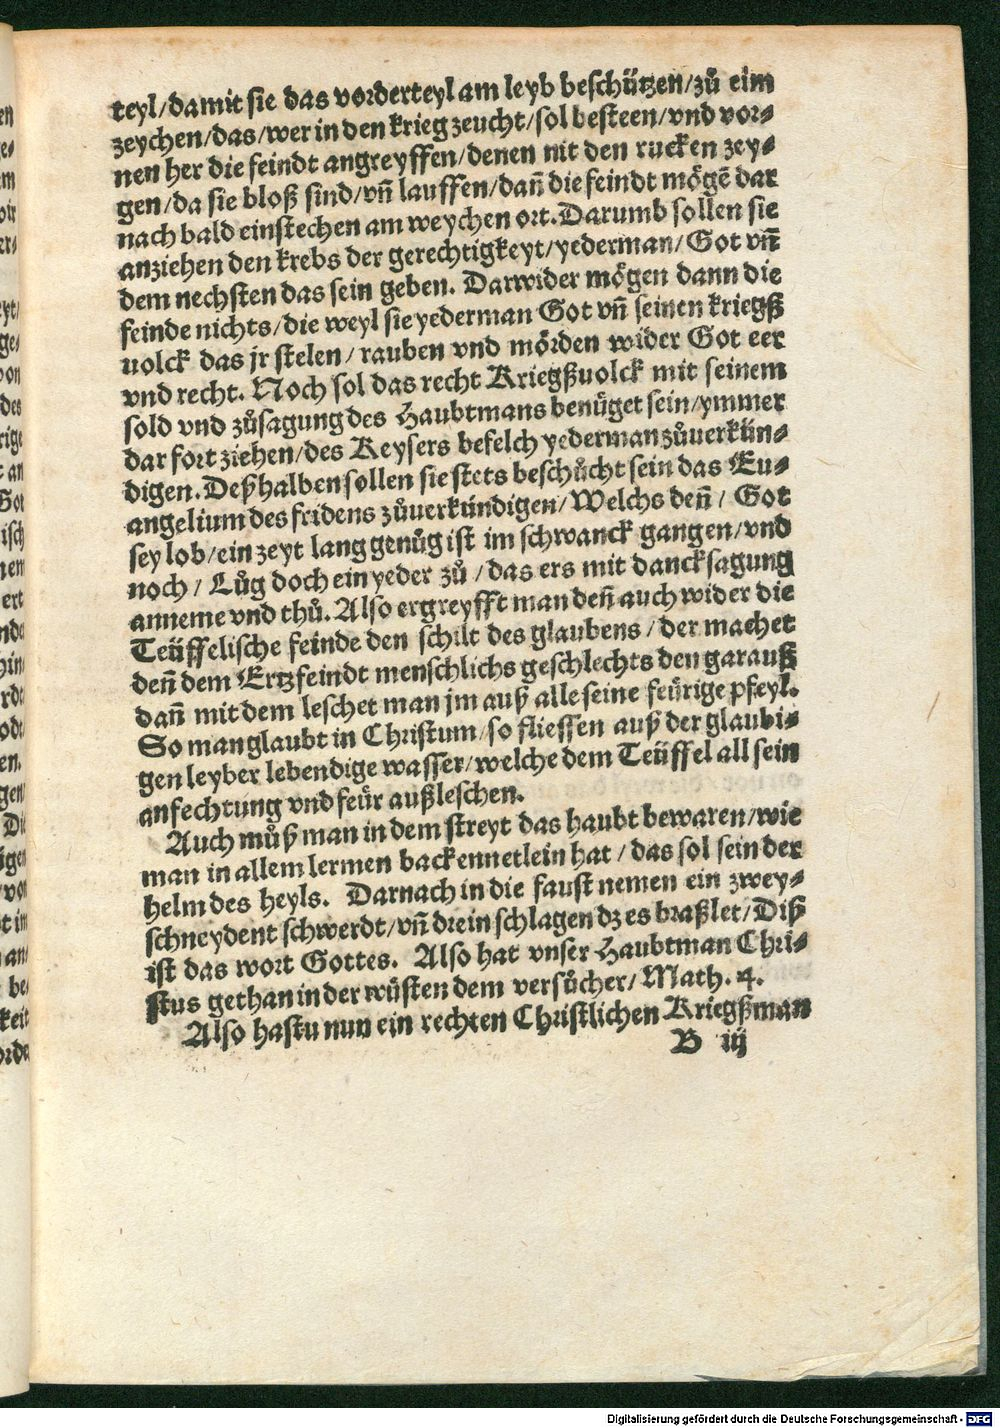 teyl/damit sie das vorderteyl am leyb beschützen/zů eim
zeychen/das/wer in den krieg zeucht/sol besteen/vnd vor⸗
nen her die feindt angreyffen/denen nit den rucken zey⸗
gen/da sie bloß sind/vñ lauffen/dañ die feindt mögẽ dar
nach bald einstechen am weychen ort. Darumb sollen sie
anziehen den krebs der gerechtigkeyt/yederman/Got vñ
dem nechsten das sein geben. Darwider mögen dann die
feinde nichts/die weyl sie yederman Got vñ seinen kriegß
uolck das jr stelen/rauben vnd mörden wider Got eer
vnd recht. Noch sol das recht Kriegßuolck mit seinem
sold vnd zůsagung des Haubtmans benüget sein/ymmer
dar fort ziehen/des Keysers befelch yederman zůuerkün⸗
digen. Deßhalben sollen sie stets beschůcht sein das Eu⸗
angelium des fridens zůuerkündigen/Welchs deñ/Got
sey lob/ein zeyt lang genůg ist im schwanck gangen/vnd
noch/Lůg doch ein yeder zů/das ers mit dancksagung
anneme vnd thů. Also ergreyfft man deñ auch wider die
Teüffelische feinde den schilt des glaubens/der machet
deñ dem Ertzfeindt menschlichs geschlechts den garauß
dañ mit dem leschet man jm auß alle seine feürige pfeyl.
So man glaubt in Christum/so fliessen auß der glaubi⸗
gen leyber lebendige wasser/welche dem Teüffel all sein
anfechtung vnd feür außleschen.
Auch můß man in dem streyt das haubt bewaren/wie
man in allem lermen backennetlein hat/das sol sein der
helm des heyls. Darnach in die faust nemen ein zwey⸗
schneydent schwerdt/vñ drein schlagen dz es braßlet/Diß
ist das wort Gottes. Also hat vnser Haubtman Chri⸗
stus gethan in der wüsten dem versůcher/Math. 4.
Also hastu nun ein rechten Christlichen Kriegßman
B iij
Digitalisierung gefördert durch die Deutsche Forschungsgemeinschaft - DFG